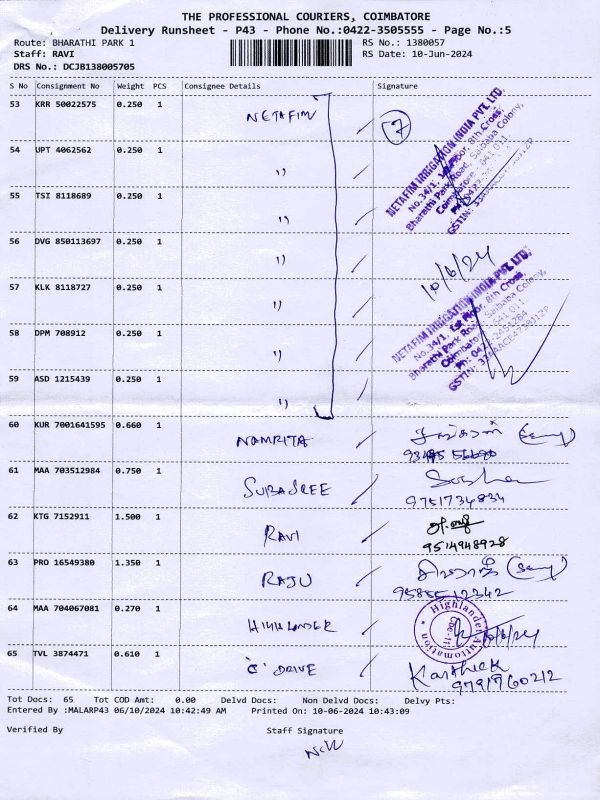 THE PROFESSIONAL COURIERS, COIMBATORE
Delivery Runsheet - P43 - Phone No.:0422-3505555 - Page No.:5
Route: BHARATHI PARK 1 RS No.: 1380057
Staff: RAVI RS Date: 10-Jun-2024
DRS No.: DCJB138005705
S No Consignment No Weight PCS Consignee Details Signature
53 KRR 50022575 0.250 1 NETAFIM 7
NETAFIM IRRIGATION INDIA PVT. LTD.
No.34/1, 1st Floor, 8th Cross,
Bharathi Park Road, Saibaba Colony,
Coimbatore - 641 011.
54 UPT 4062562 0.250 1 ")
55 TSI 8118689 0.250 1 ")
56 DVG 850113697 0.250 1 ")
10/6/24
57 KLK 8118727 0.250 1 ")
NETAFIM IRRIGATION INDIA PVT. LTD.
No.34/1, 1st Floor, 8th Cross,
Bharathi Park Road, Saibaba Colony,
Coimbatore - 641 011.
58 DPM 708912 0.250 1 ")
59 ASD 1215439 0.250 1 ")
60 KUR 7001641595 0.660 1 NAMRITA
61 MAA 703512984 0.750 1 SUBASREE
9751734834
62 KTG 7152911 1.500 1 RAVI
9514948928
63 PRO 16549380 1.350 1 RAJU
9585512342
64 MAA 704067081 0.270 1 HIGHLANDER
Highlander Automation
65 TVL 3874471 0.610 1 'C' DRIVE Karthick
9791760212
Tot Docs: 65 Tot COD Amt: 0.00 Delvd Docs: Non Delvd Docs: Delvy Pts:
Entered By :MALARP43 06/10/2024 10:42:49 AM Printed On: 10-06-2024 10:43:09
Verified By Staff Signature